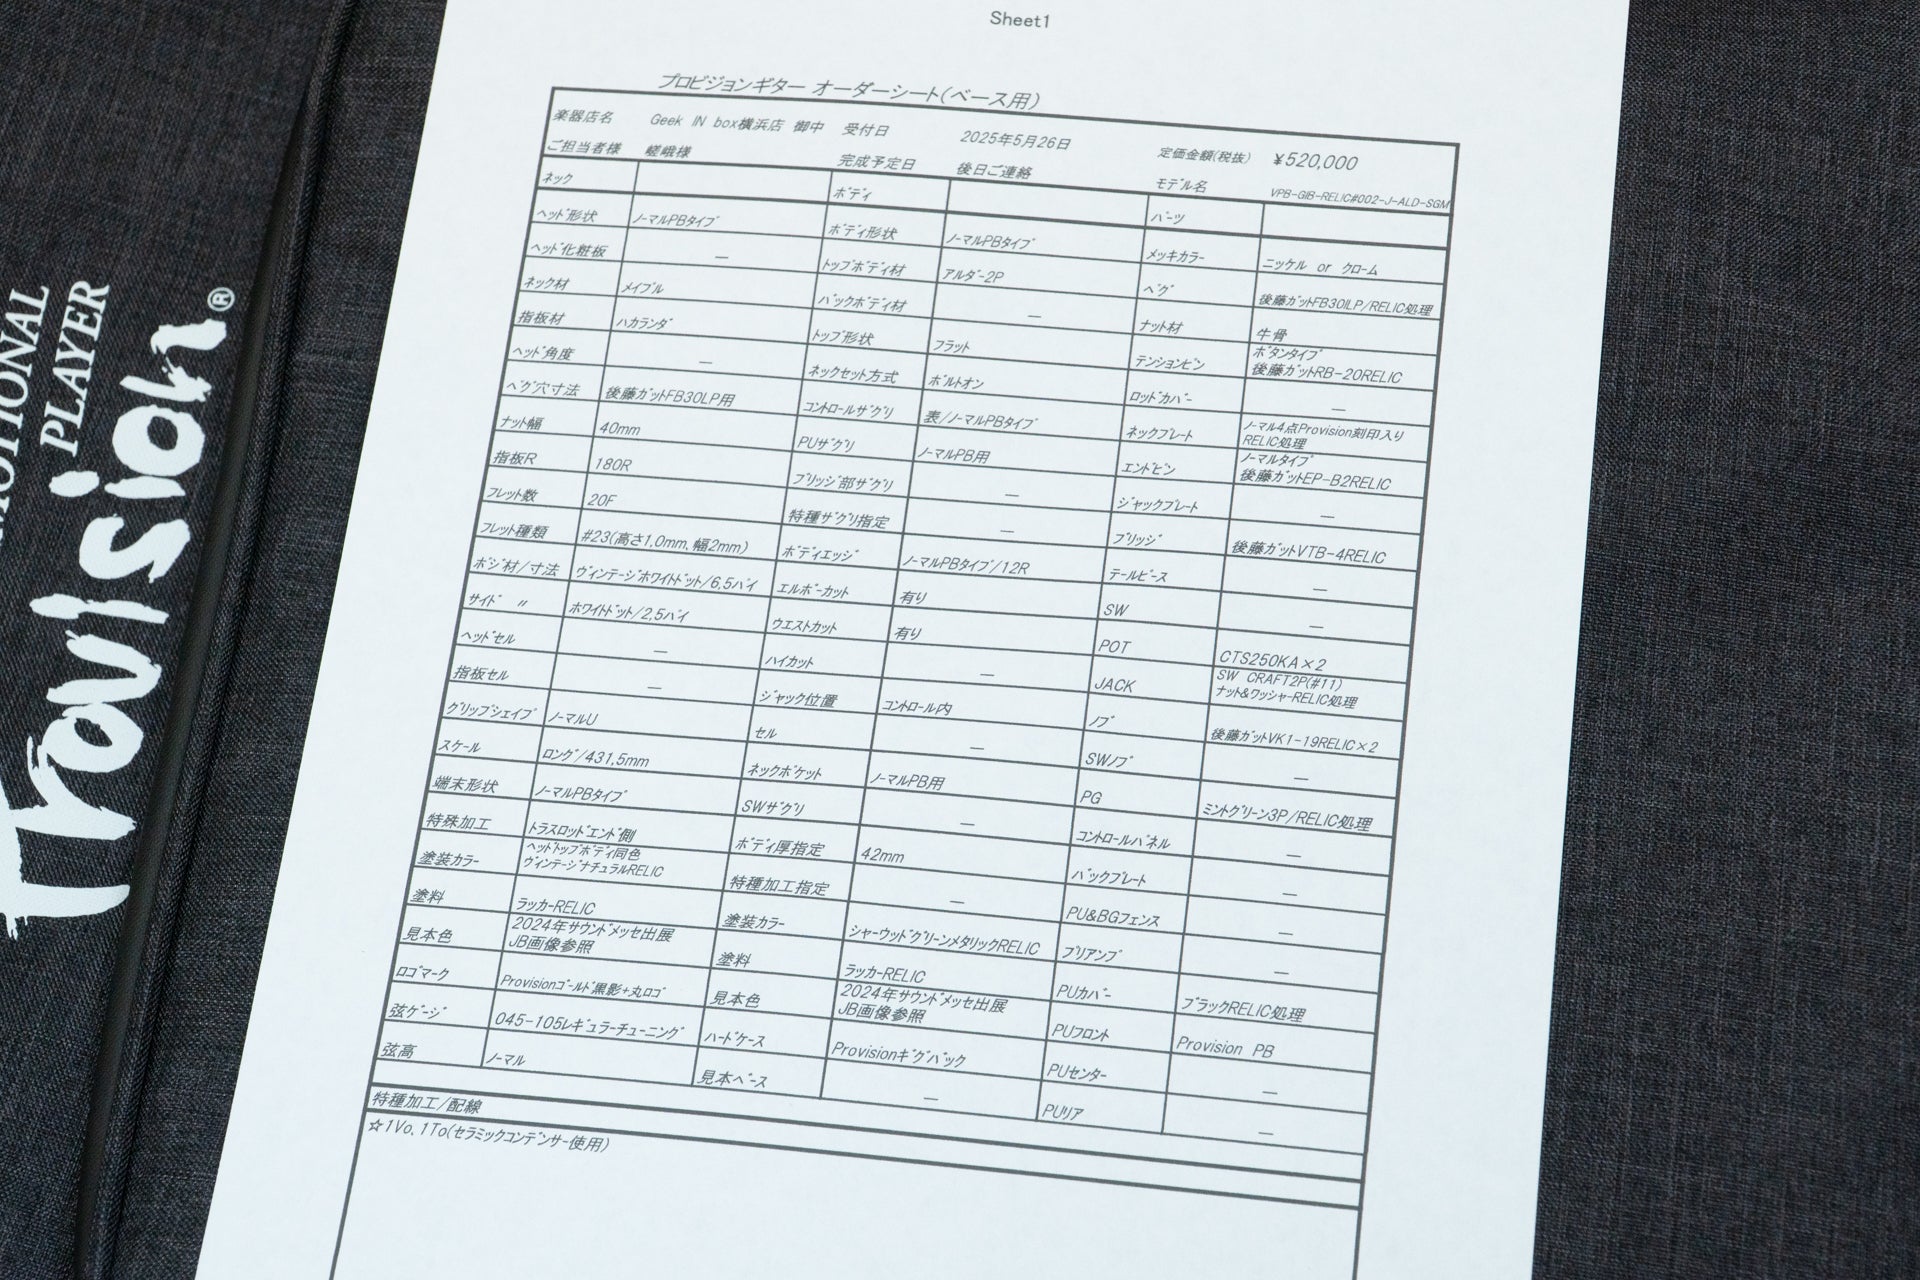 Sheet1
プロビジョンギター オーダーシート(ベース用)
楽器店名 Geek IN box横浜店 御中 受付日 2025年5月26日 定価金額(税抜) ¥520,000
ご担当者様 嵯峨様 完成予定日 後日ご連絡 モデル名 VPB-GIB-RELIC#002-J-ALD-SGM
ネック ボディ パーツ
ヘッド形状 ノーマルPBタイプ ボディ形状 ノーマルPBタイプ メッキカラー ニッケル or クローム
ヘッド化粧板 — トップボディ材 アルダー2P ペグ 後藤ガットFB30LP/RELIC処理
ネック材 メイプル バックボディ材 — ナット材 牛骨
指板材 ハカランダ トップ形状 フラット テンションピン ボタンタイプ
後藤ガットRB-20RELIC
ヘッド角度 — ネックセット方式 ボルトオン ロッドカバー —
ペグ穴寸法 後藤ガットFB30LP用 コントロールザグリ 表/ノーマルPBタイプ ネックプレート ノーマル4点Provision刻印入り
RELIC処理
ナット幅 40mm PUザグリ ノーマルPB用 エンドピン ノーマルタイプ
後藤ガットEP-B2RELIC
指板R 180R ブリッジ部ザグリ — ジャックプレート —
フレット数 20F 特種ザグリ指定 — ブリッジ 後藤ガットVTB-4RELIC
フレット種類 #23(高さ1,0mm、幅2mm) ボディエッジ ノーマルPBタイプ/12R テールピース —
ポジ材/寸法 ヴィンテージホワイトドット/6,5パイ エルボーカット 有り SW —
サイド 〃 ホワイトドット/2,5パイ ウエストカット 有り POT CTS250KA×2
ヘッドセル — ハイカット — JACK SW CRAFT2P(#11)
ナット&ワッシャーRELIC処理
指板セル — ジャック位置 コントロール内 ノブ 後藤ガットVK1-19RELIC×2
グリップシェイプ ノーマルU セル — SWノブ —
スケール ロング/431,5mm ネックポケット ノーマルPB用 PG ミントグリーン3P/RELIC処理
端末形状 ノーマルPBタイプ SWザグリ — コントロールパネル —
特殊加工 トラスロッドエンド側 ボディ厚指定 42mm バックプレート —
塗装カラー ヘッドトップボディ同色
ヴィンテージナチュラルRELIC 特種加工指定 — PU&BGフェンス —
塗料 ラッカーRELIC 塗装カラー シャーウッドグリーンメタリックRELIC プリアンプ —
見本色 2024年サウンドメッセ出展
JB画像参照 塗料 ラッカーRELIC PUカバー ブラックRELIC処理
ロゴマーク Provisionゴールド黒影+丸ロゴ 見本色 2024年サウンドメッセ出展
JB画像参照 PUフロント Provision PB
弦ゲージ 045-105レギュラーチューニング ハードケース Provisionギグバック PUセンター —
弦高 ノーマル 見本ベース — PUリア —
特種加工/配線
☆1Vo、1To(セラミックコンデンサー使用)
PLAYER
Provision®